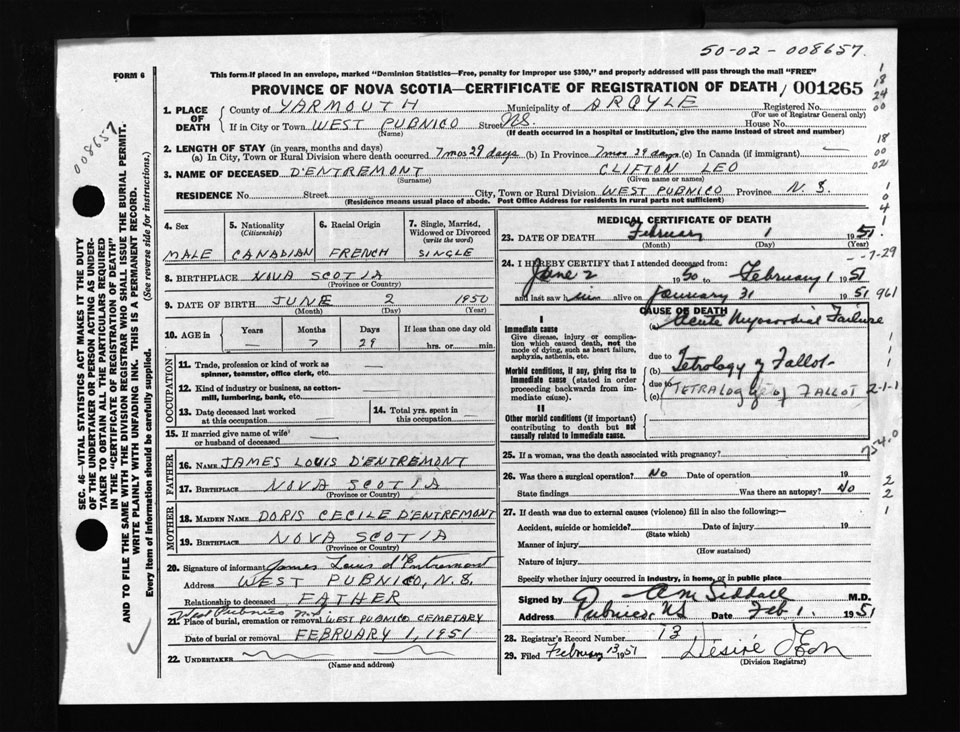 50-02-008657.
FORM 6
This form if placed in an envelope, marked "Dominion Statistics—Free, penalty for improper use $300," and properly addressed will pass through the mail "FREE"
PROVINCE OF NOVA SCOTIA—CERTIFICATE OF REGISTRATION OF DEATH / 001265
1. PLACE OF DEATH
County of YARMOUTH Municipality of ARGYLE Registered No.
(For use of Registrar General only)
If in City or Town WEST PUBNICO Street NS. House No.
(Name) (If death occurred in a hospital or institution, give the name instead of street and number)
2. LENGTH OF STAY (in years, months and days)
(a) In City, Town or Rural Division where death occurred 7mos 29 days (b) In Province 7mos 29 days (c) In Canada (if immigrant) —
3. NAME OF DECEASED D'ENTREMONT CLIFTON LEO
(Surname) (Given name or names)
RESIDENCE No. Street City, Town or Rural Division WEST PUBNICO Province N. S.
(Residence means usual place of abode. Post Office Address for residents in rural parts not sufficient)
4. Sex
MALE
5. Nationality
(Citizenship)
CANADIAN
6. Racial Origin
FRENCH
7. Single, Married, Widowed or Divorced
(write the word)
SINGLE
8. BIRTHPLACE NOVA SCOTIA
(Province or Country)
9. DATE OF BIRTH JUNE 2 1950
(Month) (Day) (Year)
10. AGE in
Years Months Days If less than one day old
— 7 29 hrs. or min.
OCCUPATION
11. Trade, profession or kind of work as
spinner, teamster, office clerk, etc. —
12. Kind of industry or business, as cotton-
mill, lumbering, bank, etc. —
13. Date deceased last worked
at this occupation
14. Total yrs. spent in
this occupation —
15. If married give name of wife
or husband of deceased —
FATHER
16. NAME JAMES LOUIS D'ENTREMONT
17. BIRTHPLACE NOVA SCOTIA
(Province or Country)
MOTHER
18. MAIDEN NAME DORIS CECILE D'ENTREMONT
19. BIRTHPLACE NOVA SCOTIA
(Province or Country)
20. Signature of informant James Louis d'Entremont
Address WEST PUBNICO, N. S.
Relationship to deceased FATHER
West Pubnico
21. Place of burial, cremation or removal WEST PUBNICO CEMETARY
Date of burial or removal FEBRUARY 1, 1951
22. UNDERTAKER
(Name and address)
MEDICAL CERTIFICATE OF DEATH
23. DATE OF DEATH February 1 1951
(Month) (Day) (Year)
24. I HEREBY CERTIFY that I attended deceased from:
June 2 1950 to February 1 1951
and last saw him alive on January 31 1951
CAUSE OF DEATH
I
Immediate cause
Give disease, injury or complica-
tion which caused death, not the
mode of dying, such as heart failure,
asphyxia, asthenia, etc.
(a) Acute Myocardial Failure
due to
Morbid conditions, if any, giving rise to
immediate cause (stated in order
proceeding backwards from im-
mediate cause).
(b) Tetrology of Fallot
due to
(c) TETRALOGY of FALLOT
II
Other morbid conditions (if important)
contributing to death but not
causally related to immediate cause.
25. If a woman, was the death associated with pregnancy?
26. Was there a surgical operation? NO Date of operation 19
State findings Was there an autopsy? NO
27. If death was due to external causes (violence) fill in also the following:—
Accident, suicide or homicide? Date of injury 19
(State which)
Manner of injury
(How sustained)
Nature of injury
Specify whether injury occurred in industry, in home, or in public place
Signed by A M Siddall M.D.
Address Pubnico, NS Date Feb 1. 1951
28. Registrar's Record Number 13
29. Filed February 13 1951 Désiré d'Eon
(Division Registrar)
1
18
24
00
18
00
02
1
0
4
1
--7-29
961
2-1-1
754.0
2
2
1
008657
SEC. 46—VITAL STATISTICS ACT MAKES IT THE DUTY
OF THE UNDERTAKER OR PERSON ACTING AS UNDER-
TAKER TO OBTAIN ALL THE PARTICULARS REQUIRED
IN THE "CERTIFICATE OF REGISTRATION OF DEATH"
AND TO FILE THE SAME WITH THE DIVISION REGISTRAR WHO SHALL ISSUE THE BURIAL PERMIT.
WRITE PLAINLY WITH UNFADING INK. THIS IS A PERMANENT RECORD.
Every item of information should be carefully supplied. (See reverse side for instructions.)